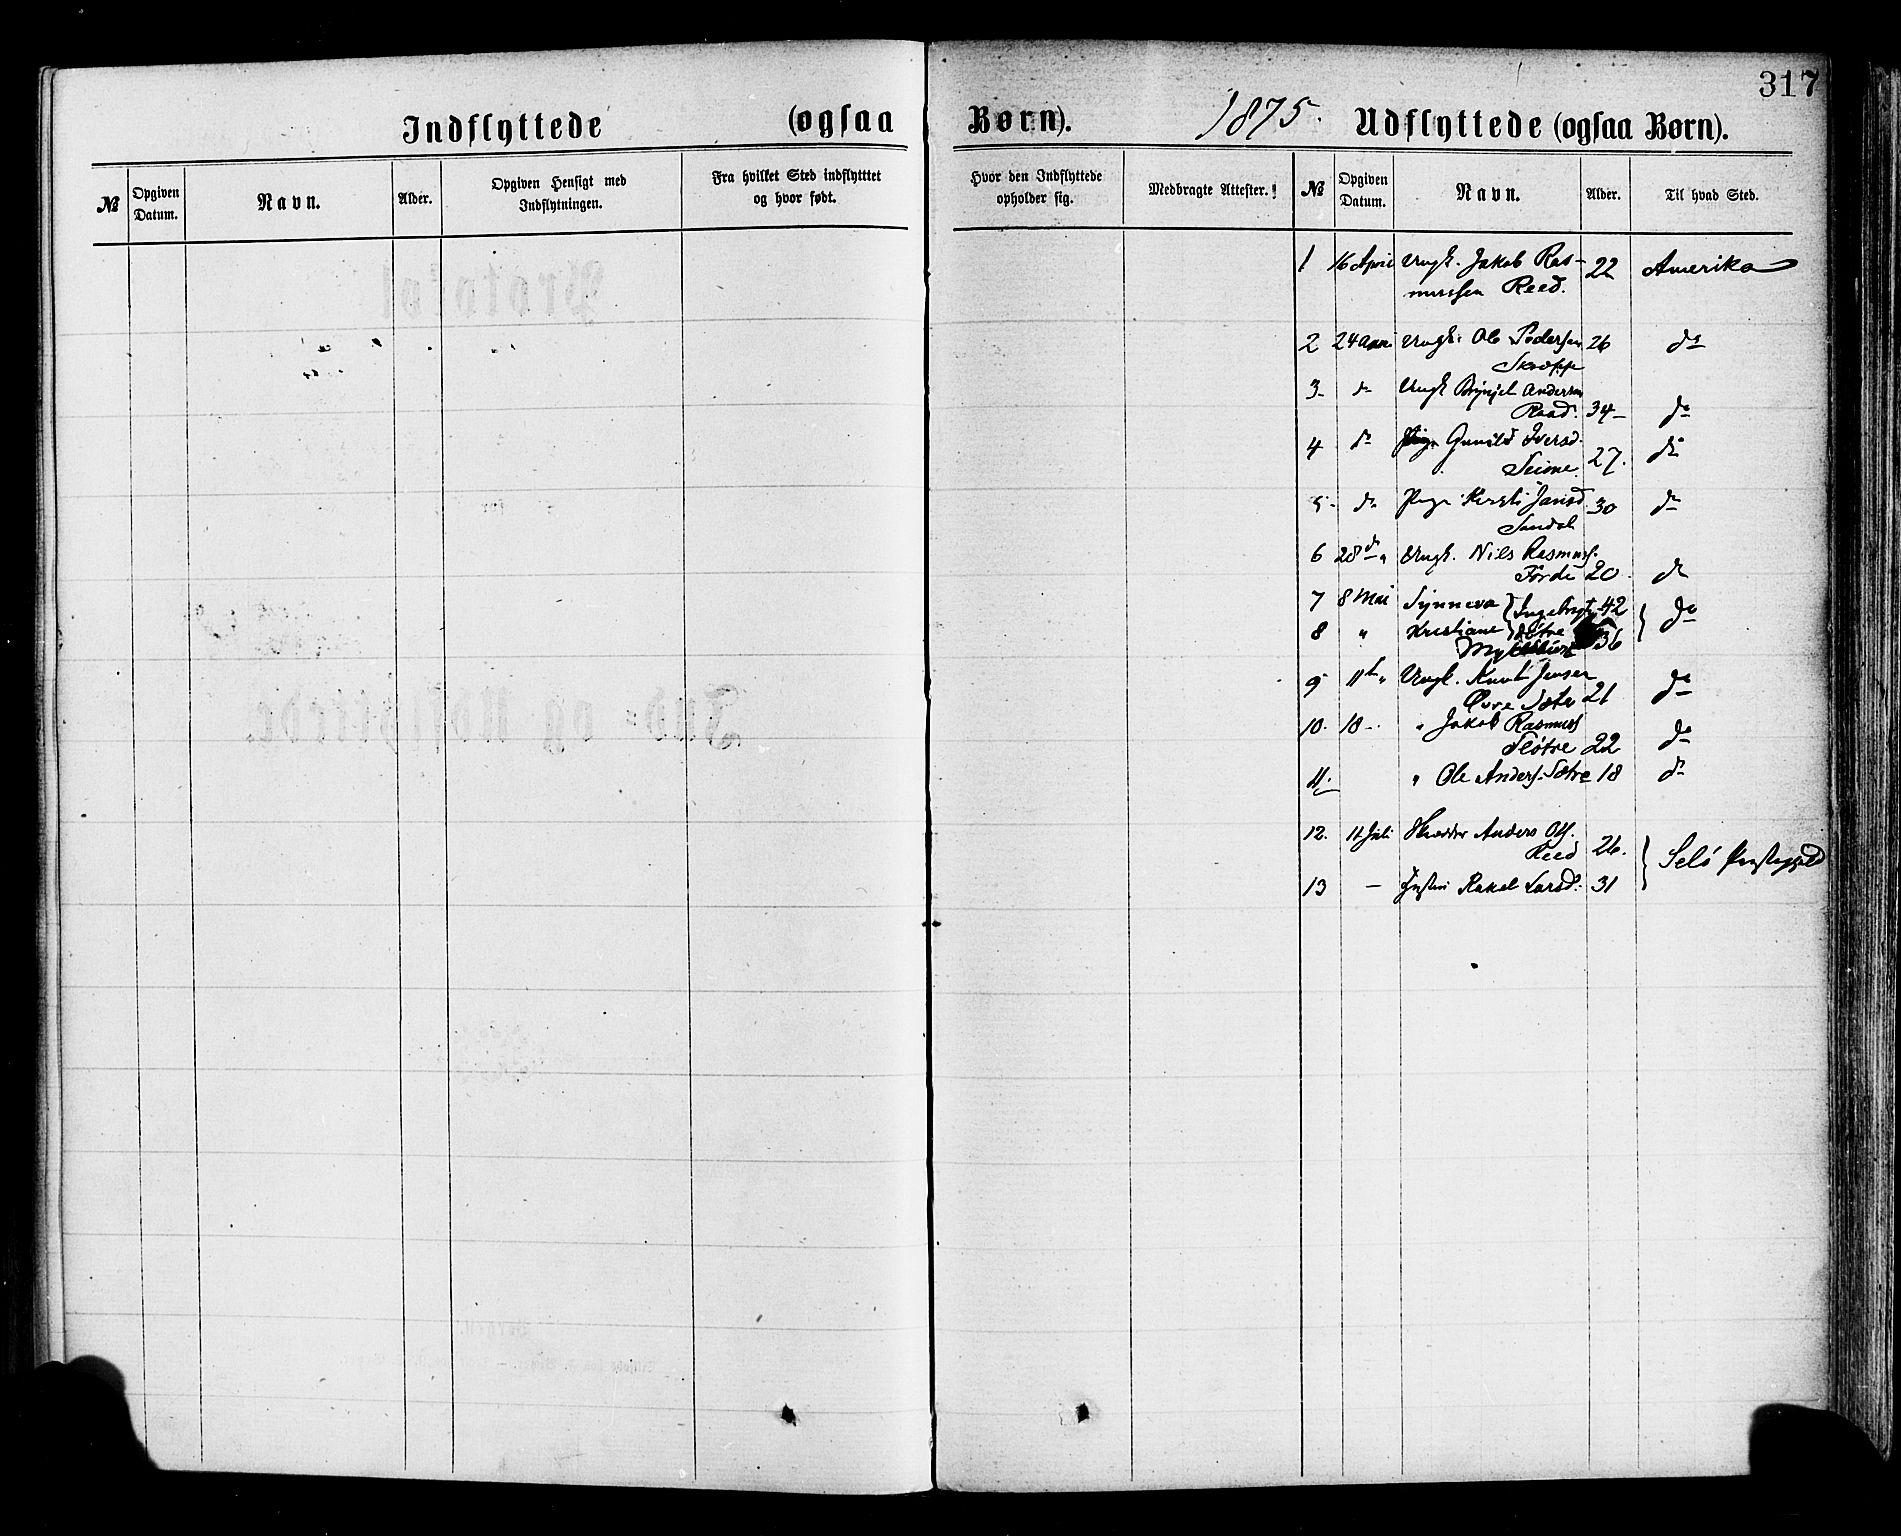 317
Indflyttede (ogsaa Børn). 1875. Udflyttede (ogsaa Børn).
№ Opgiven Datum. Navn. Alder. Opgiven Hensigt med Indflytningen. Fra hvilket Sted indflytttet og hvor født. Hvor den Indflyttede opholder sig. Medbragte Attester. № Opgiven Datum. Navn. Alder. Til hvad Sted.
1 16 April Ungk. Jakob Ras- 22 Amerika
mussen Reed.
2 24 Ungk. Ole Pedersen 26 do
3 do Ungk Brynjel Andersen
34 do
4 do Pige Gunild Iversd.
Seime 27. do
5 do Pige Kersti Jansd. 30 do
Sandal
6 28 do Ungk. Nils Rasmuss.
Førde 20. do
7 8 Mai Synneva Ingebrigtd 42
8 " Kristiane 36 do
Myklebust
9 11te " Ungk. Knut Jensen
Øvre Sæter 21 do
10. 18 - " Jakob Rasmuss
Fløtre 22 do
11. " Ole Anders. Sætre 18 do
12. 11 Juli Skrædder Anders Ols.
Reed 26. Selø Præstegjeld
13 — Rakel Larsd. 31